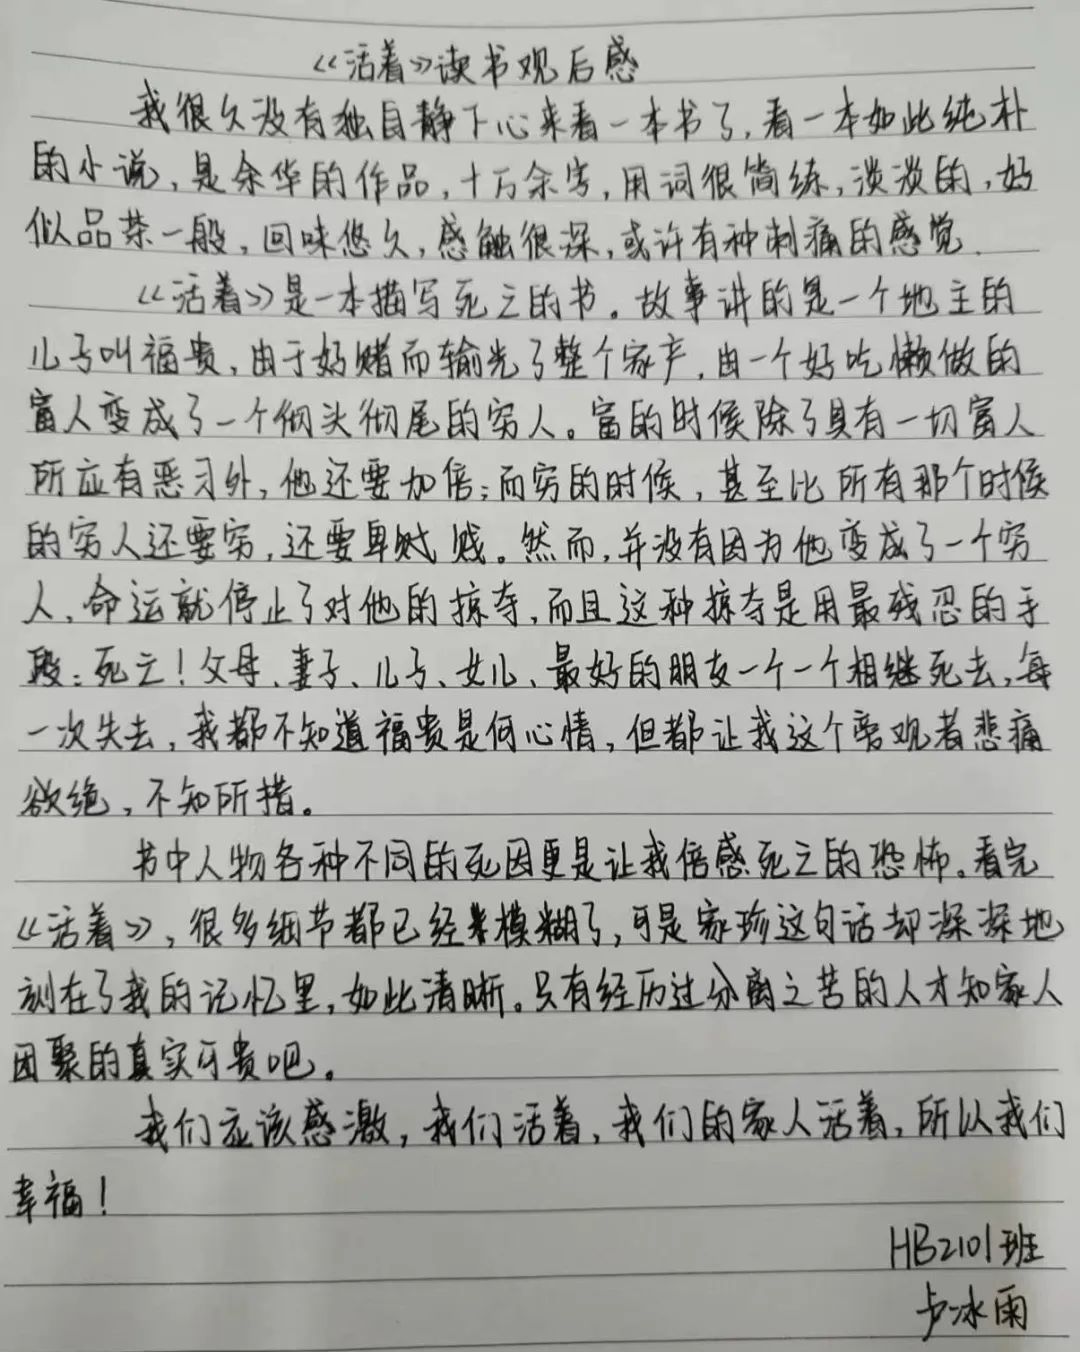 《活着》读书观后感
我很久没有独自静下心来看一本书了,看一本如此纯朴
的小说,是余华的作品,十万余字,用词很简练,淡淡的,好
似品茶一般,回味悠久,感触很深,或许有种刺痛的感觉.
《活着》是一本描写死亡的书。故事讲的是一个地主的
儿子叫福贵,由于好赌而输光了整个家产,由一个好吃懒做的
富人变成了一个彻头彻尾的穷人。富的时候除了具有一切富人
所应有恶习外,他还要加倍;而穷的时候,甚至比所有那个时候
的穷人还要穷,还要卑贱贱。然而,并没有因为他变成了一个穷
人,命运就停止了对他的掠夺,而且这种掠夺是用最残忍的手
段:死亡!父母、妻子、儿子、女儿、最好的朋友一个一个相继死去,每
一次失去,我都不知道福贵是何心情,但都让我这个旁观者悲痛
欲绝,不知所措。
书中人物各种不同的死因更是让我倍感死亡的恐怖。看完
《活着》,很多细节都已经模糊了,可是家珍这句话却深深地
刻在了我的记忆里,如此清晰。只有经历过分离之苦的人才知家人
团聚的真实可贵吧。
我们应该感激,我们活着,我们的家人活着,所以我们
幸福!
HB2101班
卢冰雨